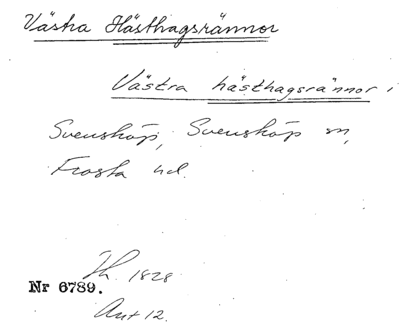 Västra Hästhagsrännor
Västra hästhagsrännor i
Svensköp, Svensköp sn,
Frosta hd.
Th. 1828
Nr 6789.
Ant 12.